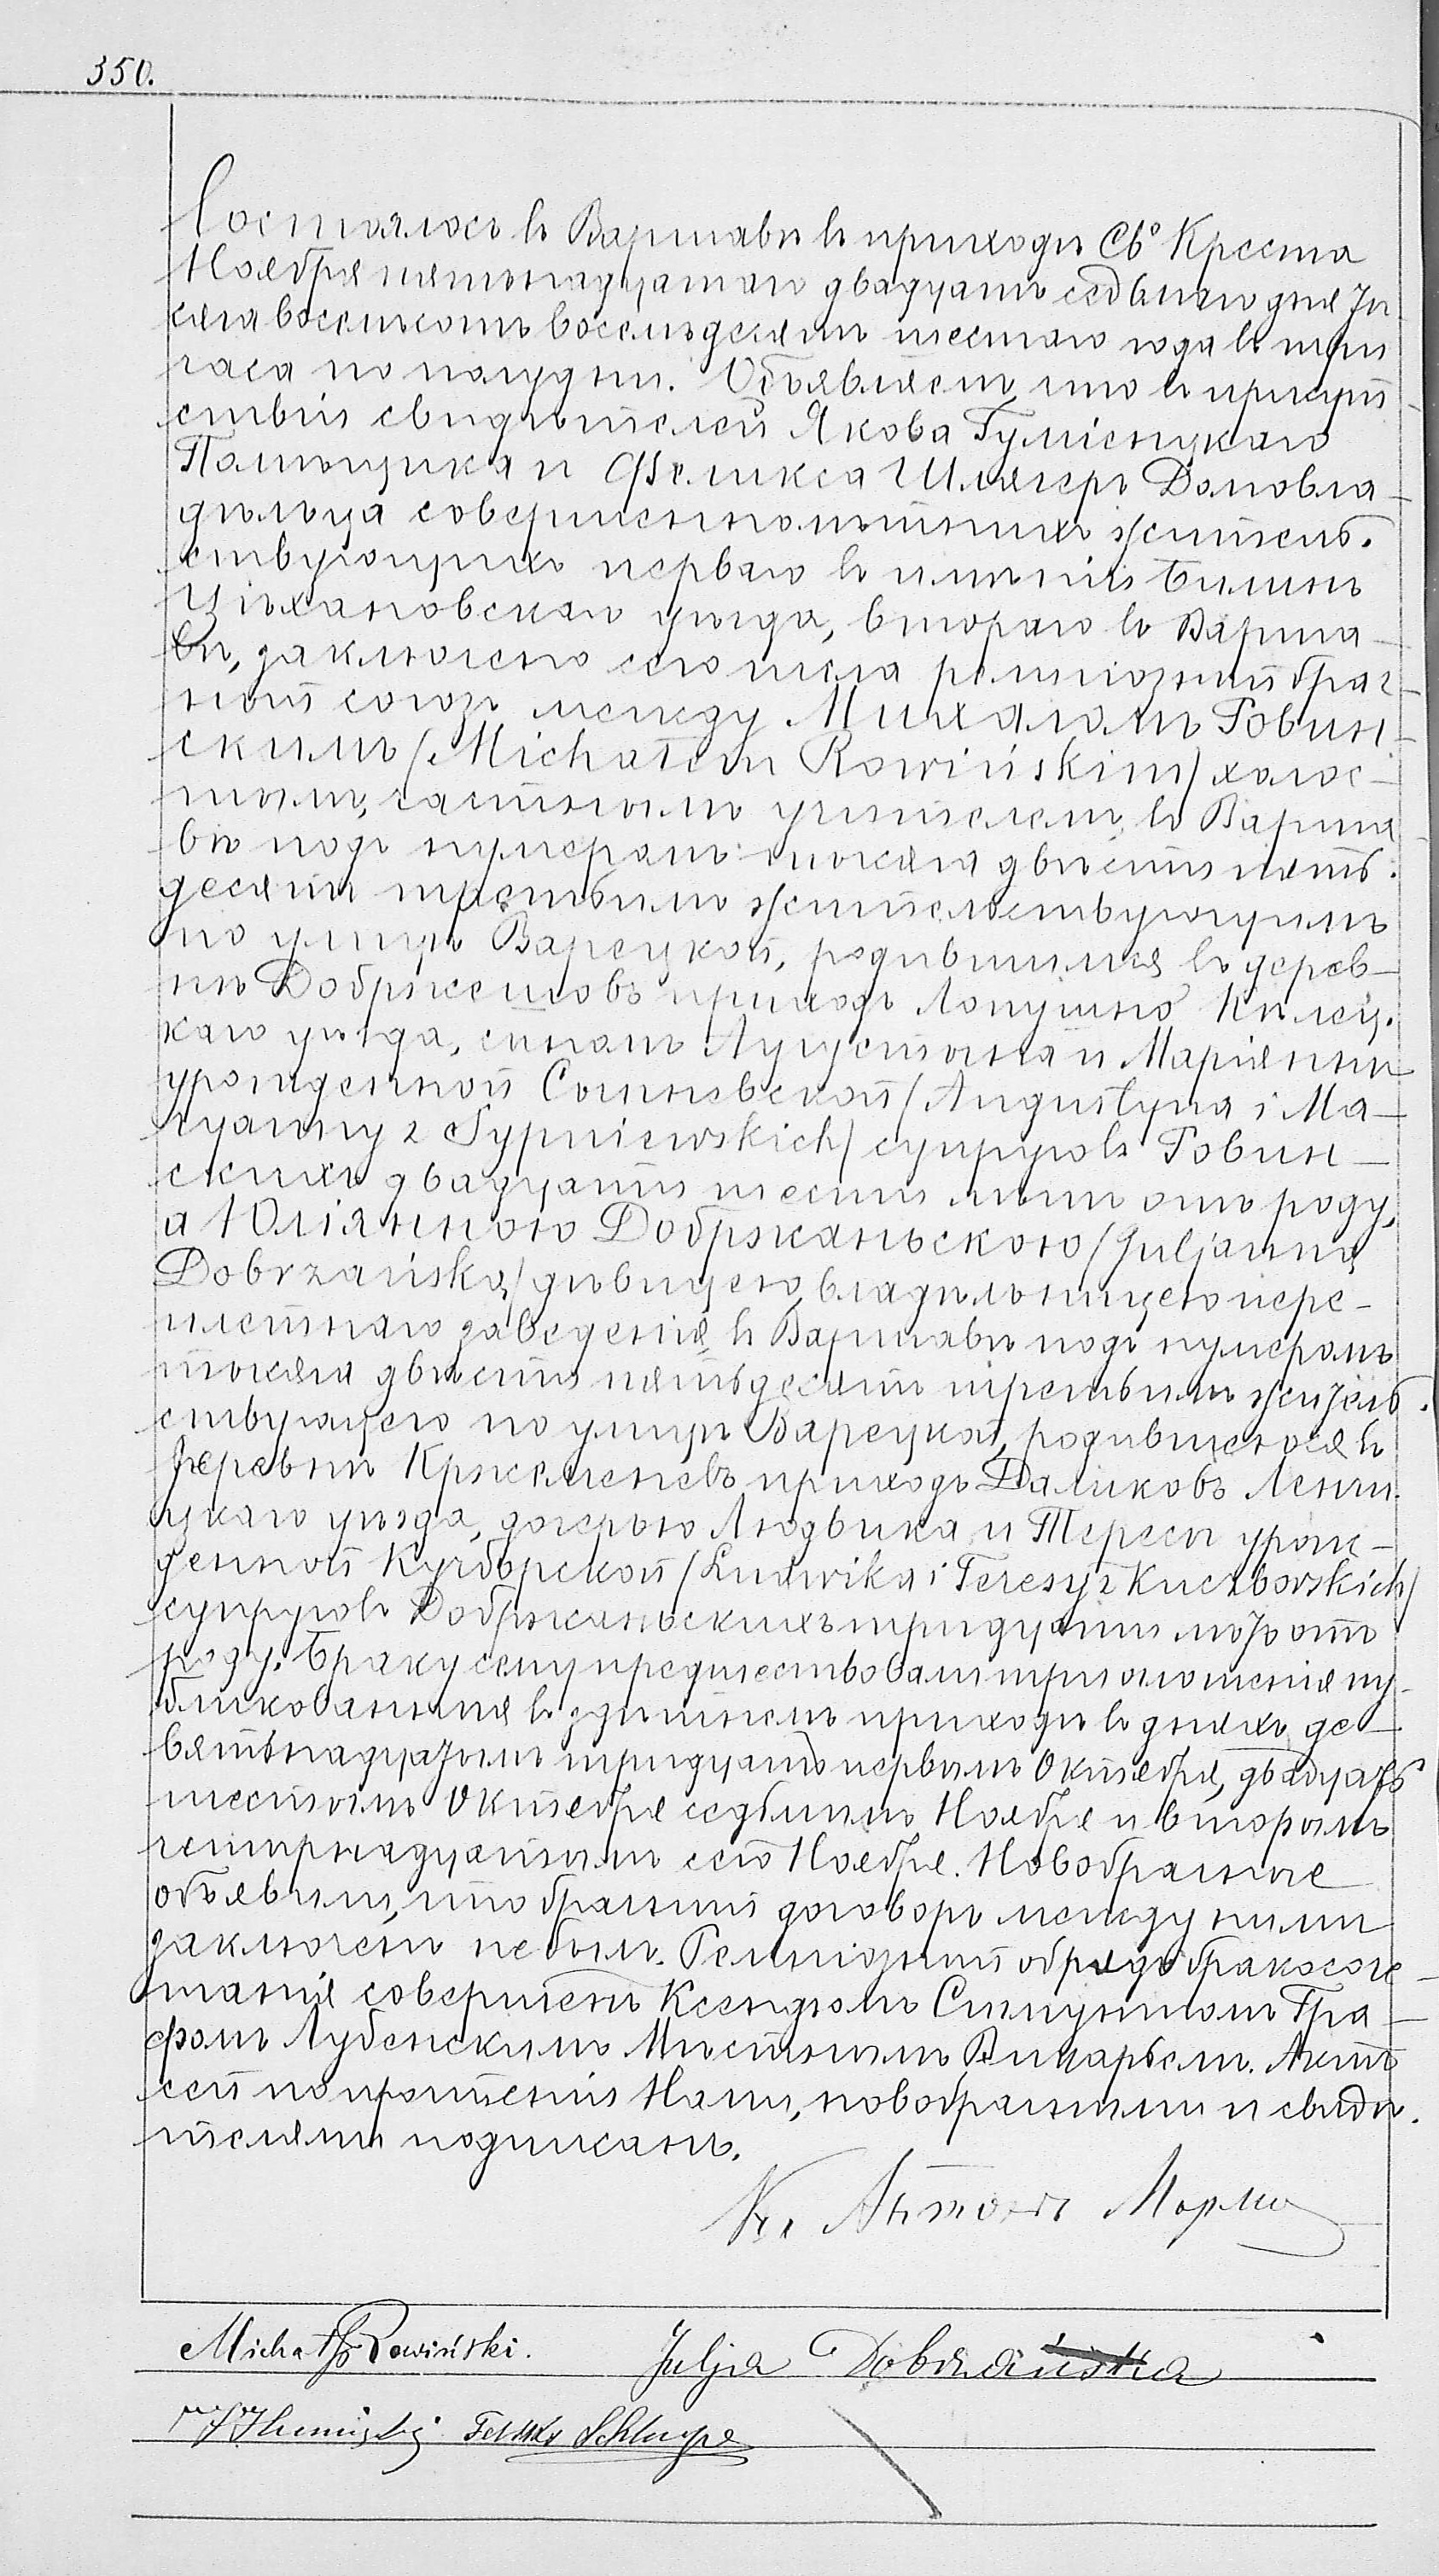 350.
Состоялось въ Варшавѣ въ приходѣ Св° Креста
Ноября пятьнадцатаго двадцать седьмаго дня Ты
сяча восемьсотъ восемьдесятъ шестаго года въ три
часа по полудни. Объявляемъ, что въ присут-
ствіи свидѣтелей Якова
Помѣщика и Феликса Шлягеръ Домовла-
дѣльца совершеннолѣтнихъ жительс.
ствующихъ перваго въ имѣніи Билинъ
Цѣхановскаго уѣзда, втораго въ Варша-
вѣ, заключено сего числа религіозный брач-
ный союзъ между Михаломъ Ровин-
скимъ /Michałem Rowińskim/ холос-
тымъ, частнымъ учителемъ, въ Варша-
вѣ подъ нумеромъ тысяча двѣсти пять.
десятъ третьимъ жительствующимъ
по улицѣ Варецкой, родившимся въ дерев-
нѣ приходъ Лопушно Кѣлец.
каго уѣзда, сыномъ Аугустына и Маріянны
урожденной /Augustyna i Ma-
ryanny z Sypniewskich/ супруговъ Ровин-
скихъ двадцати шести лѣтъ отъ роду,
а Юліянною Добржаньскою /Juljanną
Dobrzańską/ дѣвицею, владѣльницею пере-
плетнаго заведенія, въ Варшавѣ подъ нумеромъ
тысяча двѣсти пятьдесятъ третьимъ житель.
ствующею по улицѣ Варецкой, родившеюся въ
деревнѣ приходъ Даликовъ Ленчи.
цкаго уѣзда, дочерью Людвика и Тересы урож-
денной Кучборской /Ludwika i Teresy z Kuczborskich/
супруговъ Добржаньскихъ тридцати лѣтъ отъ
роду. Браку сему предшествовали три оглашенія пу-
бликованныя въ здѣшнемъ приходѣ въ дняхъ де-
вятьнадцатымъ тридцать первымъ Октября, двадцать
шестымъ Октября седьмымъ Ноября и вторымъ
четырнадцатымъ сего Ноября. Новобрачные
объявили, что брачный договоръ между ними
заключенъ небылъ. Религіозный обрядъ бракосоче-
танія совершенъ Ксендзомъ Гра-
фомъ Лубенскимъ Мѣстнымъ Викаріемъ. Актъ
сей по прочтеніи Нами, новобрачными и свидѣ.
телями подписанъ.
Кс. Антонъ
Michał Rowiński. Julja Dobrzańska